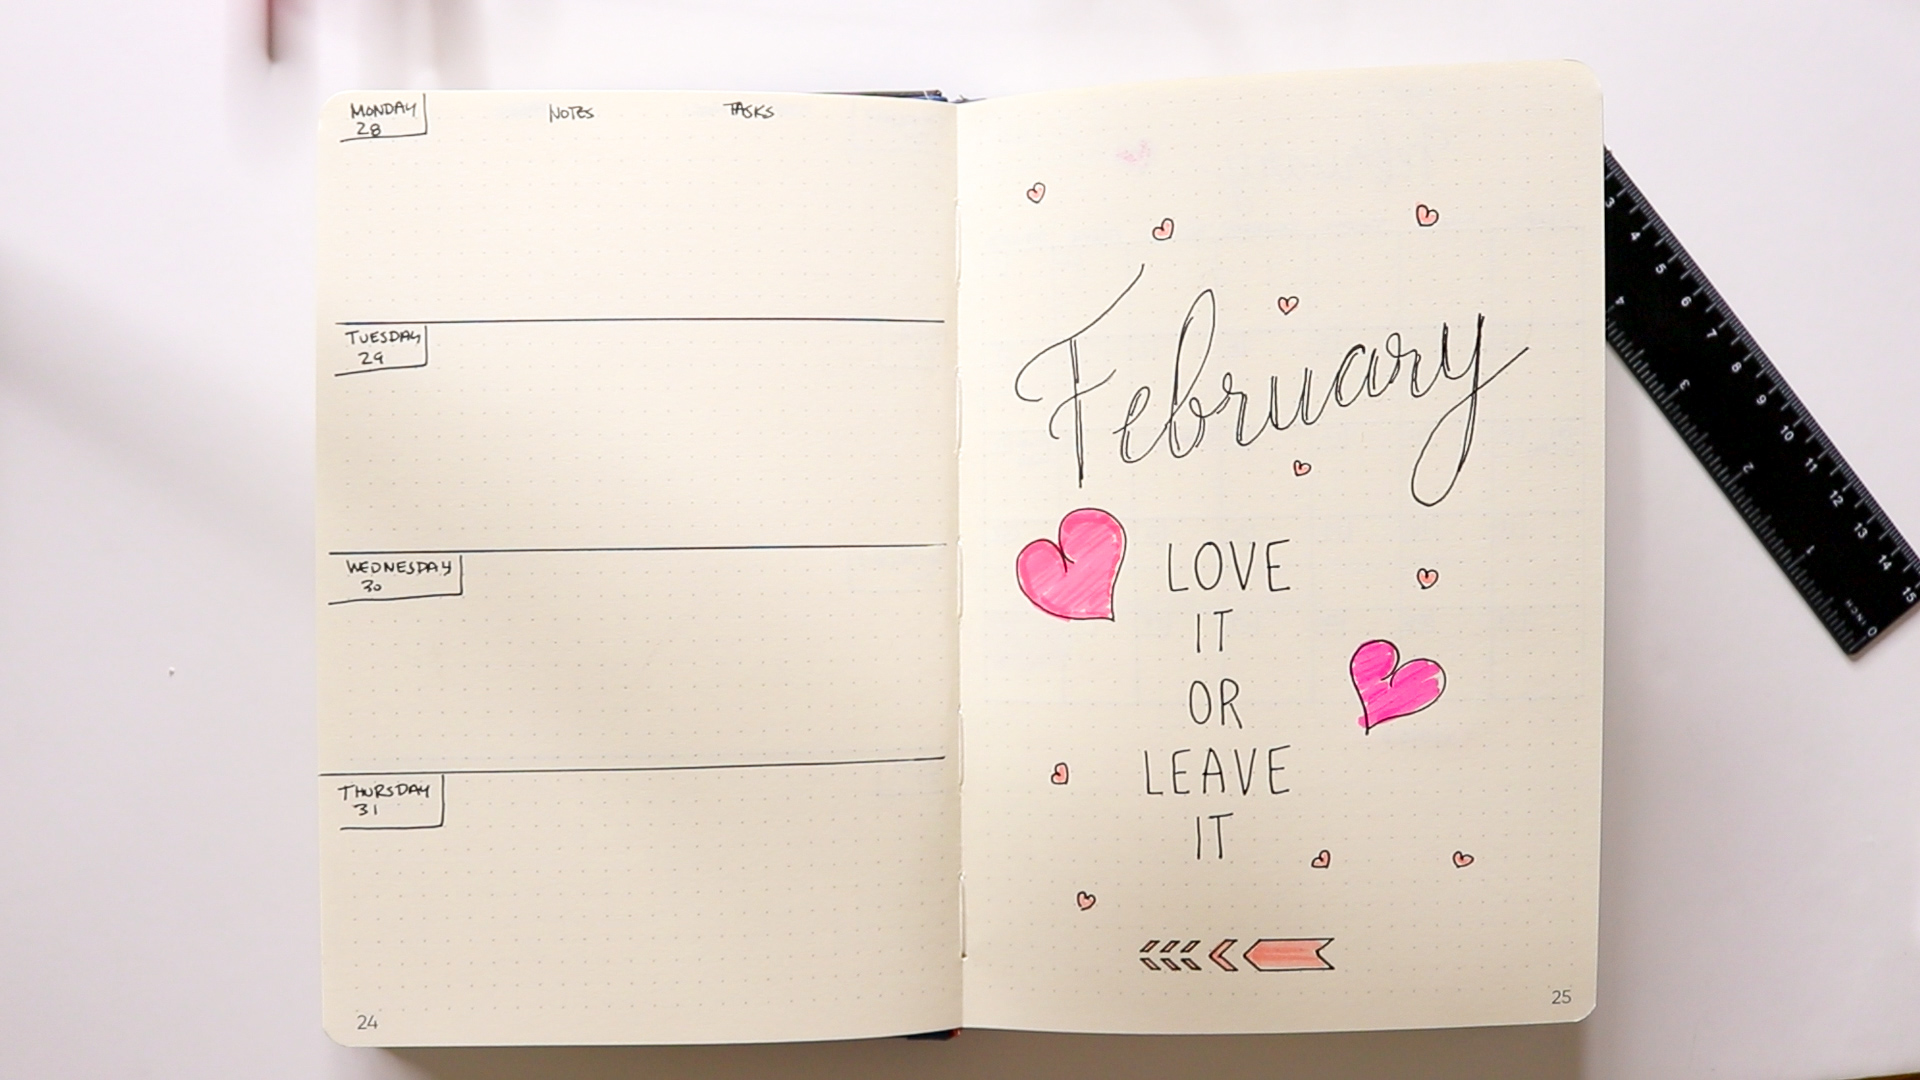 MONDAY NOTES TASKS
28
TUESDAY
29
WEDNESDAY
30
THURSDAY
31
24
February
LOVE
IT
OR
LEAVE
IT
25
3 4 5 6 7 8 9 10 11 12 13 14 15
4 3 2 1 0
INCH